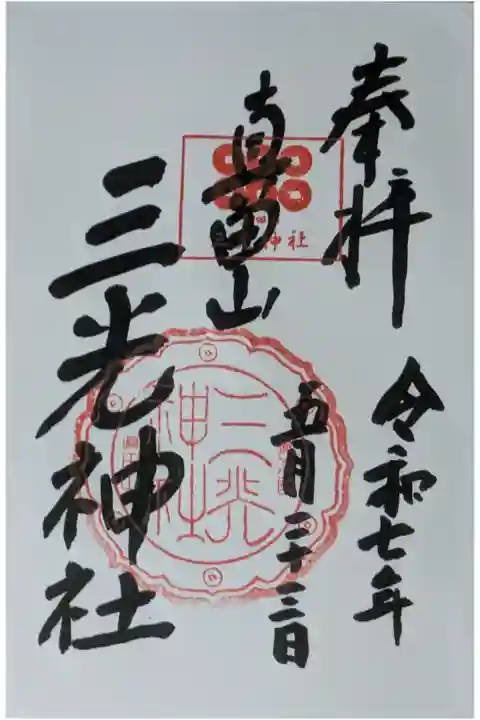 奉拝
令和七年
真田山
五月二十三日
三光神社
三光神社